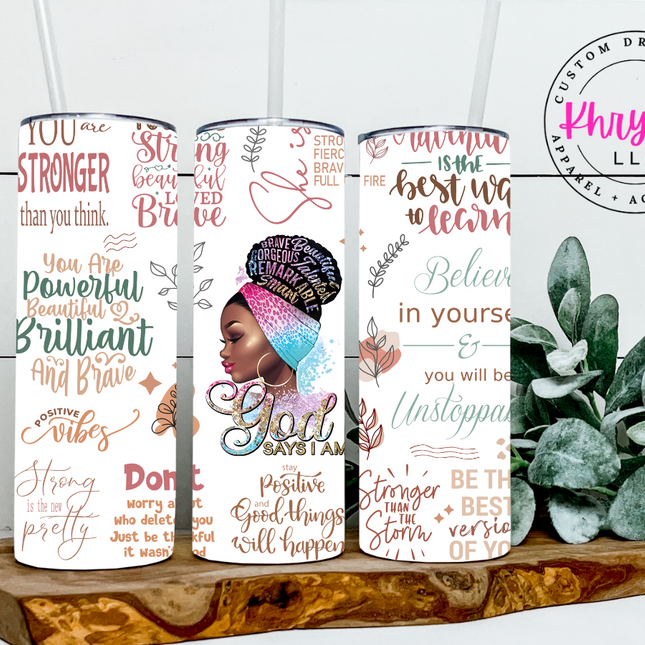 YOU are
STRONGER
than you think.
You Are
Powerful
Beautiful
Brilliant
And Brave
POSITIVE
vibes
Strong
is the new
pretty
Strong
beautiful
LOVED
Brave
Don't
worry about
who deleted you
Just be thankful
it wasn't God
She is
STRO
FIERC
BRAV
FULL
FIRE
BRAVE Beautiful
GORGEOUS Talented
REMARKABLE
Smart
God
SAYS I AM
stay
Positive
and
Good things
will happen
IS THE
best wa
to learn
Believe
in yourse
&
you will be
Unstoppab
Stronger
THAN THE
Storm
BE TH
BEST
versio
OF YO
CUSTOM DR
Khry
LL
APPAREL + AC